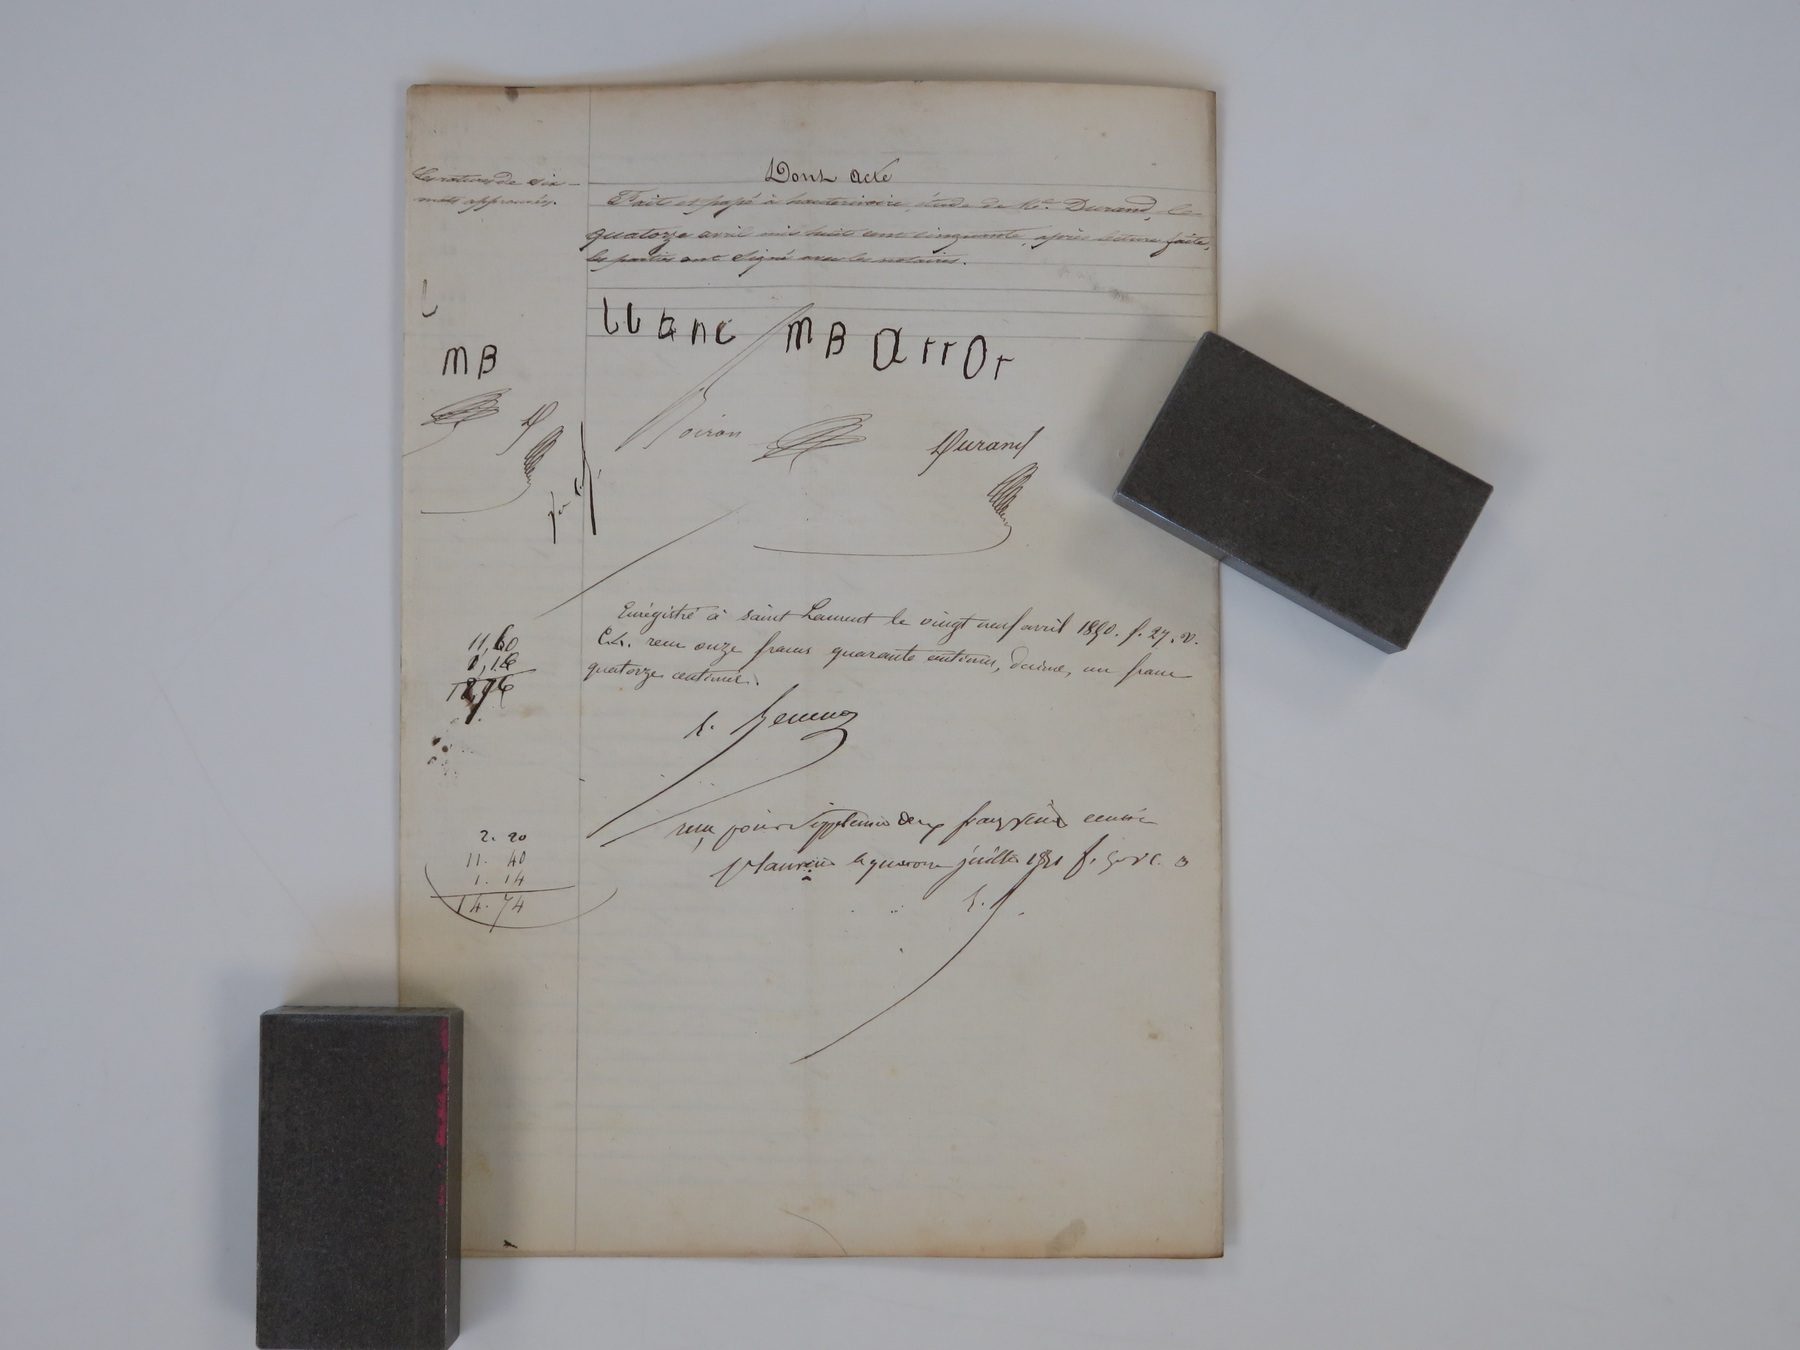 Les ratures de six
mots approuvées.
Dont acte
Fait et passé à hauterivoire, étude de Me. Durand, le
quatorze avril mil huit cent cinquante, après lecture faite,
les parties ont signé avec les notaires.
MB arror
MB
Poiron
Durand
Enregistré à saint Laurent le vingt neuf avril 1850. f. 27. v.
C. reçu onze francs quarante centimes, décime, un franc
quatorze centimes.
11,60
1,16
12,76
reçu pour Supplement deux francs vingt centimes
St Laurent le juillet f.
2. 20
11. 40
1. 14
14. 74